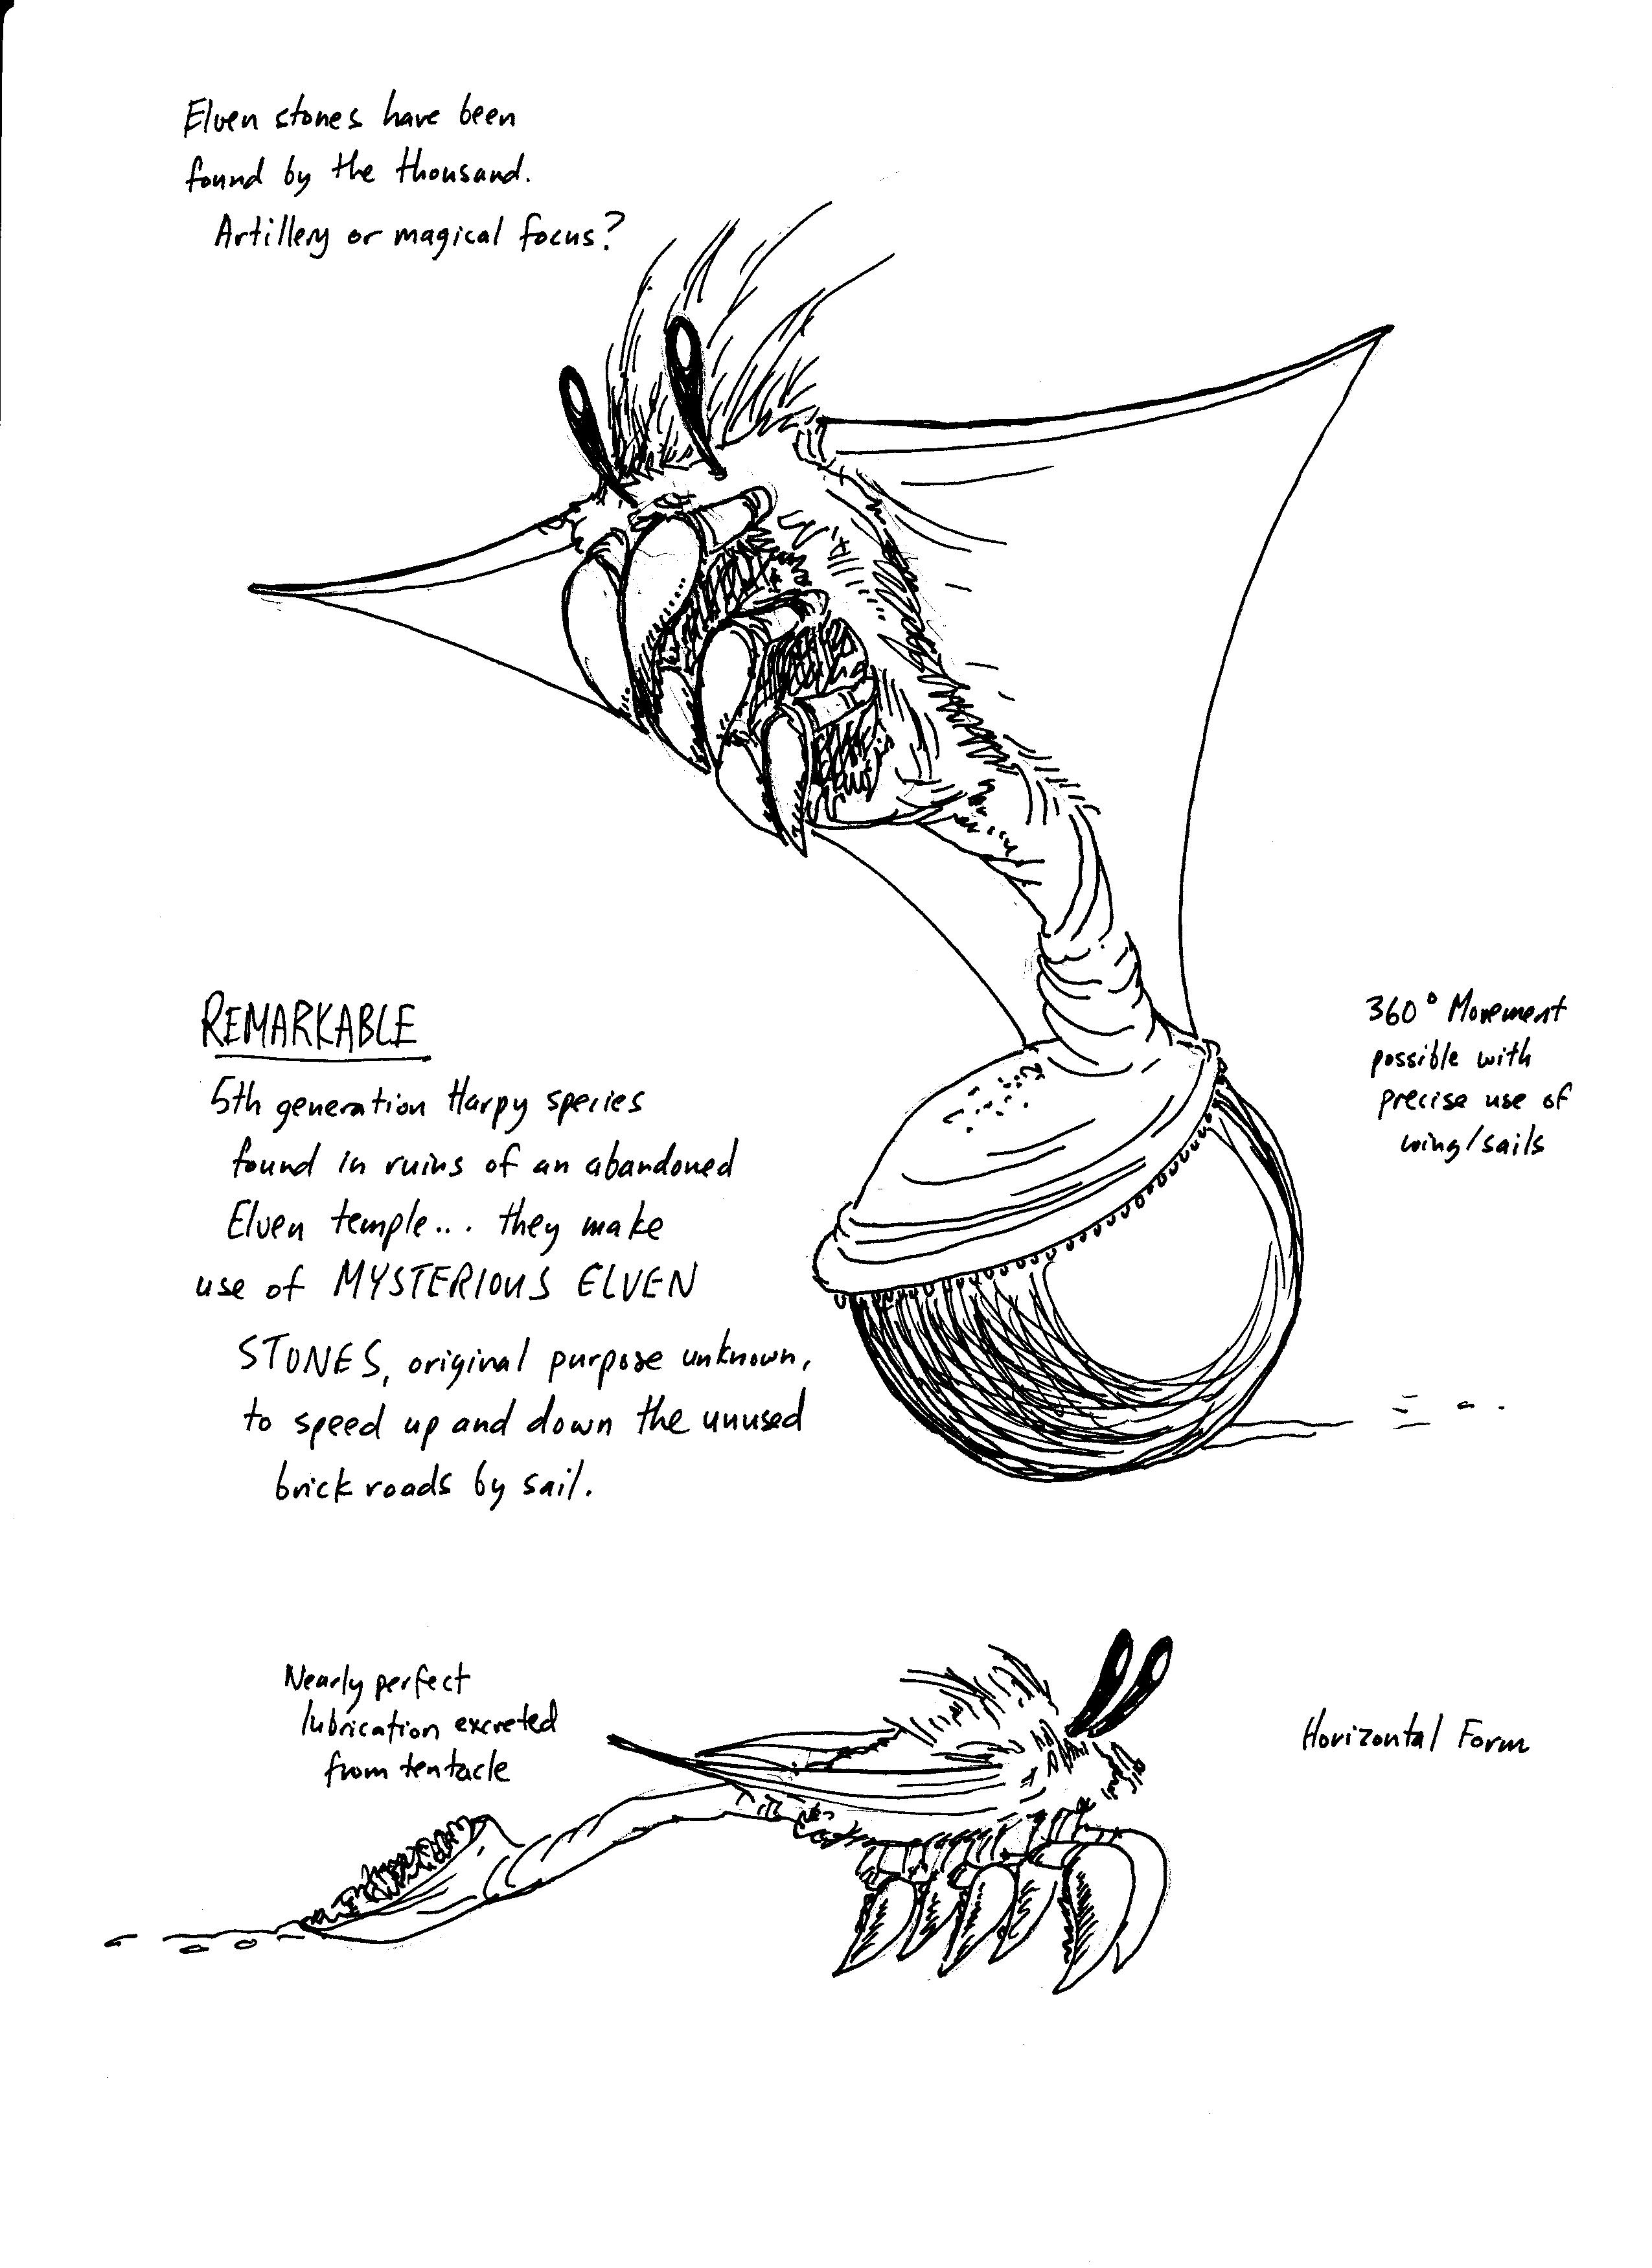 Elven stones have been
found by the thousand.
Artillery or magical focus?
REMARKABLE
5th generation Harpy species
found in ruins of an abandoned
Elven temple... they make
use of MYSTERIOUS ELVEN
STONES, original purpose unknown,
to speed up and down the unused
brick roads by sail.
360° Movement
possible with
precise use of
wing/sails
Nearly perfect
lubrication excreted
from tentacle
Horizontal Form